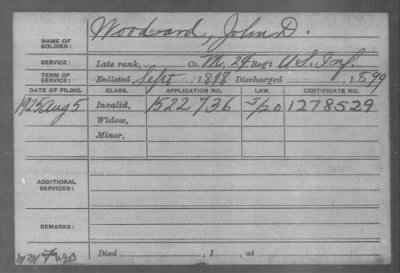 NAME OF SOLDIER: Woodward, John D.
SERVICE: Late rank, Co. M, 24 Reg't U.S. Inf.
TERM OF SERVICE: Enlisted Sept. 1898 Discharged , 1899
DATE OF FILING. CLASS. APPLICATION NO. LAW. CERTIFICATE NO.
1925 Aug 5 Invalid, 1522736 1278529
Widow,
Minor,
ADDITIONAL SERVICES:
REMARKS:
Died , 1 , at